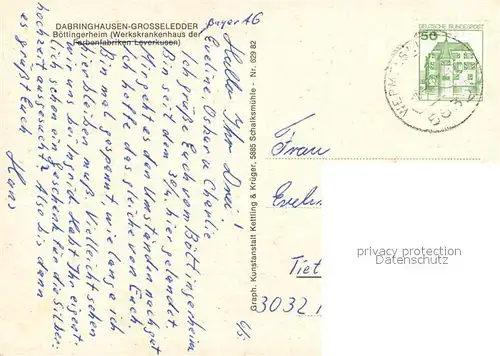 DABRINGHAUSEN-GROSSELEDDER
Böttingerheim (Werkskrankenhaus der
Farbenfabriken Leverkusen)
Bayer AG
Hallo Ihr Drei!
Eveline Oskar u Charlie
Ich grüße Euch vom Böttingerheim
Bin seit dem 30.4. hier gelandet
Mir geht es den Umständen nach gut
Ich hoffe das gleiche von Euch.
Bin mal gespannt, wie lange ich
hier bleiben muß. Vielleicht sehen
wir uns bei Ingrid. Habt Ihr eigent-
lich schon ein Geschenk für die Silber-
hochzeit ausgesucht? Also bis dann
es grüßt Euch
Hans
Graph. Kunstanstalt Kettling & Krüger, 5885 Schalksmühle - Nr. 629 82
DEUTSCHE BUNDESPOST
50
Frau
Tiet
3032
privacy protection
www.ansichtskarten-center.de